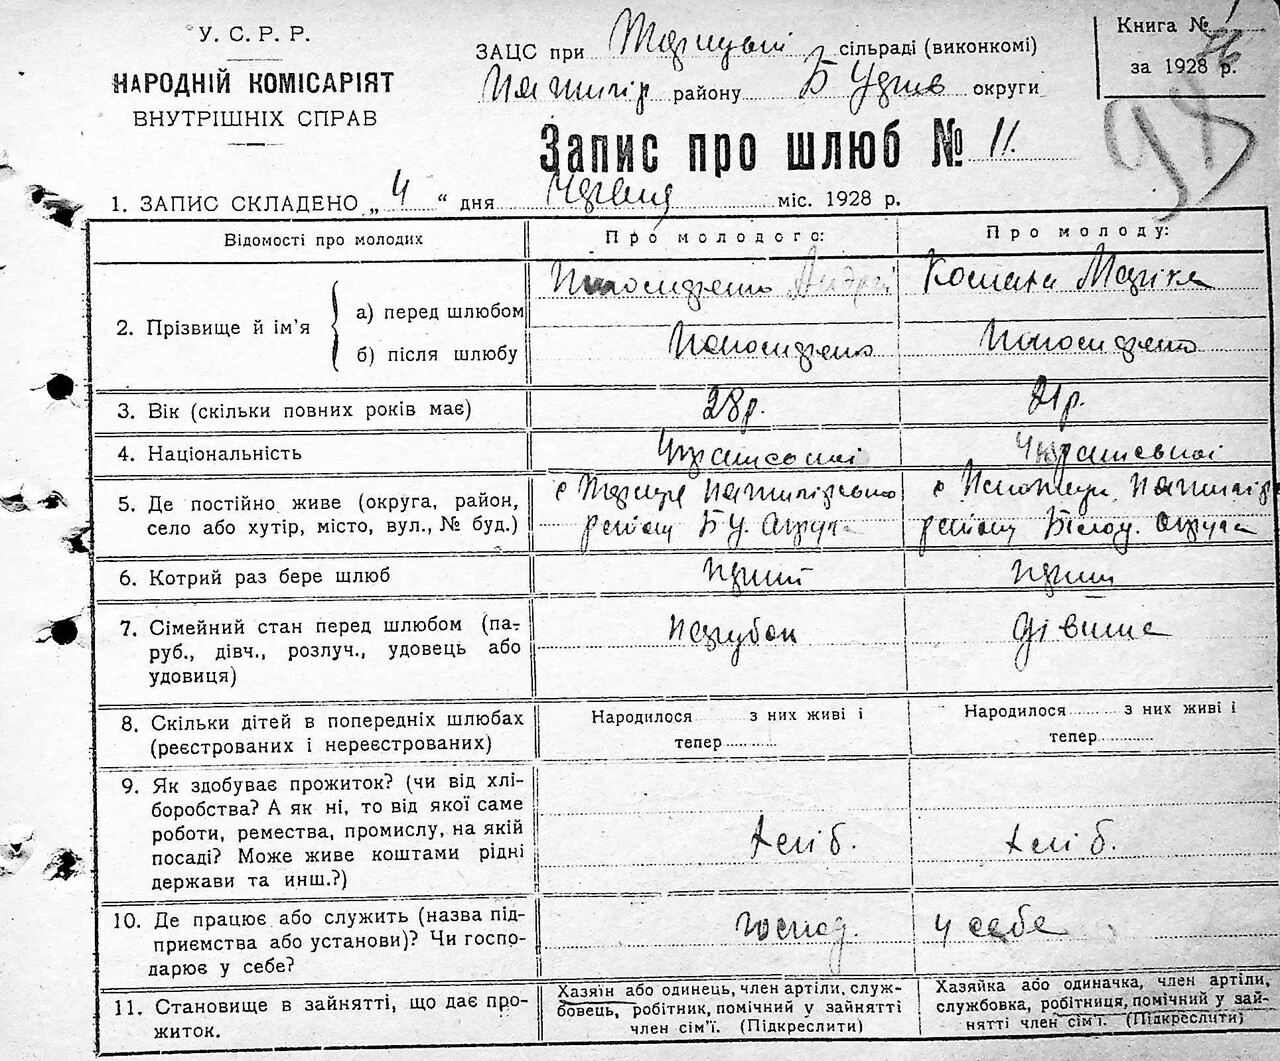 У. С. Р. Р.
НАРОДНІЙ КОМІСАРІЯТ
ВНУТРІШНІХ СПРАВ
ЗАЦС при сільраді (виконкомі)
району округи
Книга №
за 1928 р.
98
Запис про шлюб № 11.
1. ЗАПИС СКЛАДЕНО „ 4 “ дня міс. 1928 р.
Відомості про молодих
Про молодого:
Про молоду:
2. Прізвище й ім’я
а) перед шлюбом
Андрій
б) після шлюбу
3. Вік (скільки повних років має)
28 р.
21 р.
4. Національність
5. Де постійно живе (округа, район,
село або хутір, місто, вул., № буд.)
6. Котрий раз бере шлюб
7. Сімейний стан перед шлюбом (па-
руб., дівч., розлуч., удовець або
удовиця)
парубок
8. Скільки дітей в попередніх шлюбах
(реєстрованих і нереєстрованих)
Народилося з них живі і
тепер
Народилося з них живі і
тепер
9. Як здобуває прожиток? (чи від хлі-
боробства? А як ні, то від якої саме
роботи, ремества, промислу, на якій
посаді? Може живе коштами рідні
держави та инш.?)
хліб.
хліб.
10. Де працює або служить (назва під-
приємства або установи)? Чи госпо-
дарює у себе?
господ.
у себе
11. Становище в зайнятті, що дає про-
житок.
Хазяїн або одинець, член артіли, служ-
бовець, робітник, помічний у зайнятті
член сім’ї. (Підкреслити)
Хазяйка або одиначка, член артіли,
службовка, робітниця, помічний у зай-
нятті член сім’ї. (Підкреслити)